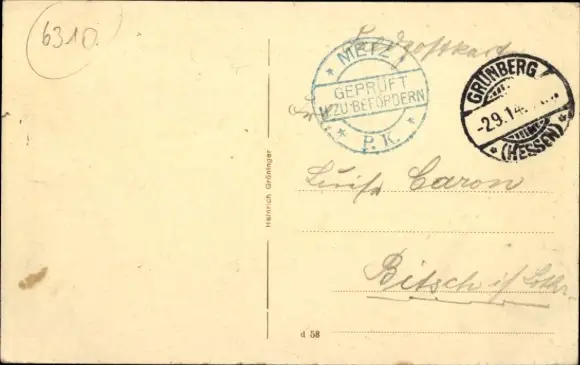 6310.
Feldpostkarte
METZ
GEPRÜFT
U.ZU BEFÖRDERN
P. K.
GRÜNBERG
-2.9.14.
(HESSEN)
Luise Caron
Bitsch i/ Lothr.
Heinrich Gröninger
d 58